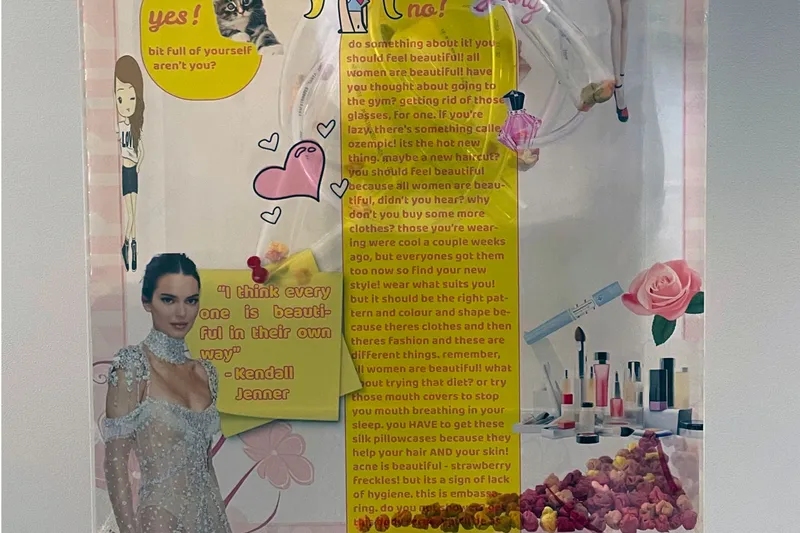 yes!
bit full of yourself
aren't you?
no!
do something about it! you
should feel beautiful! all
women are beautiful! have
you thought about going to
the gym? getting rid of those
glasses, for one. if you're
lazy, there's something calle
ozempic! its the hot new
thing. maybe a new haircut?
you should feel beautiful
because all women are beau-
tiful, didn't you hear? why
don't you buy some more
clothes? those you're wear-
ing were cool a couple weeks
ago, but everyones got them
too now so find your new
style! wear what suits you!
but it should be the right pat-
tern and colour and shape be-
cause theres clothes and then
theres fashion and these are
different things. remember,
all women are beautiful! what
about trying that diet? or try
those mouth covers to stop
you mouth breathing in your
sleep. you HAVE to get these
silk pillowcases because they
help your hair AND your skin!
acne is beautiful - strawberry
freckles! but its a sign of lack
of hygiene. this is embassa-
ring. do you not
"I think every
one is beauti-
ful in their own
way"
- Kendall
Jenner